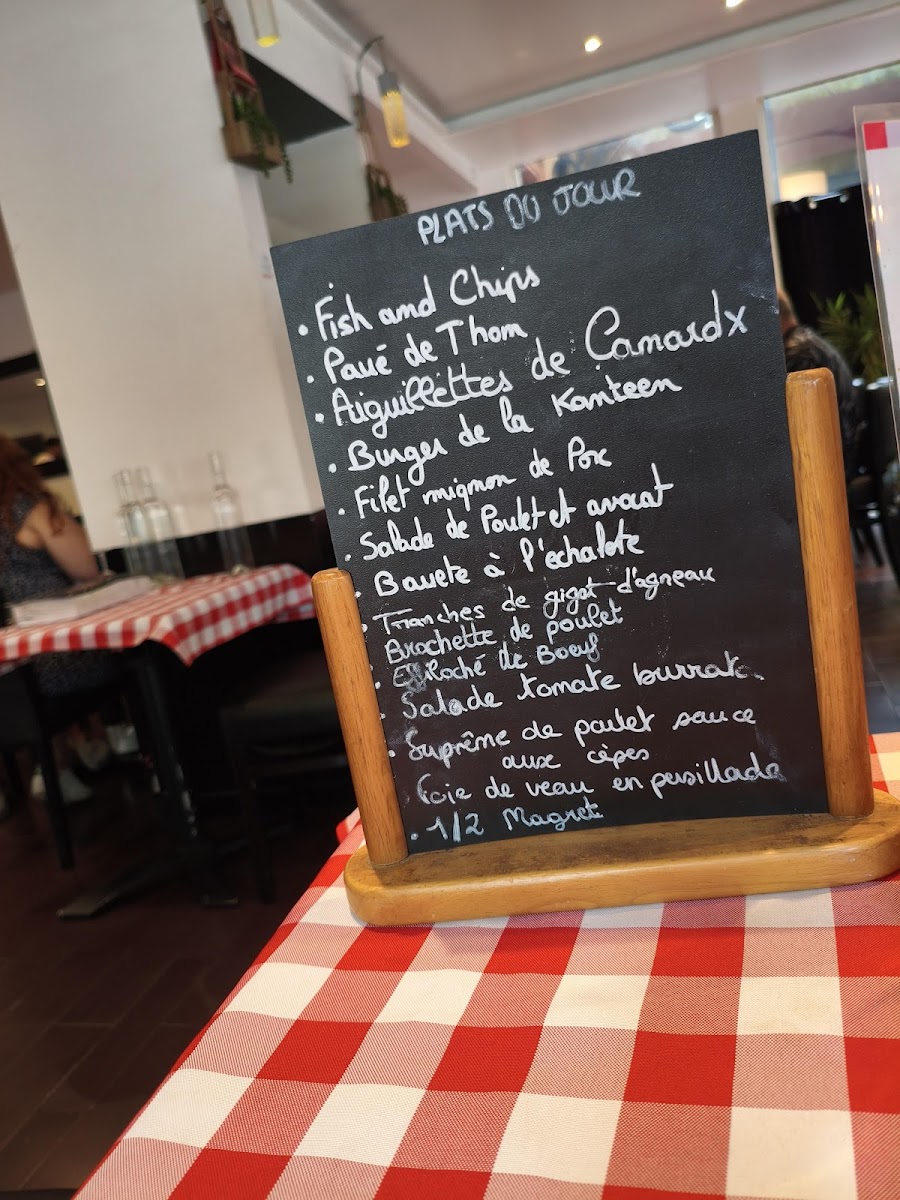 PLATS DU JOUR
• Fish and Chips
• Pavé de Thon
• Aiguillettes de Canardx
• Burger de la Kanteen
• Filet mignon de Porc
• Salade de Poulet et avocat
• Bavete à l'echalote
• Tranches de gigot d'agneau
Brochette de poulet
• Effiloché de Boeuf
• Salade tomate burrata
• Suprême de poulet sauce
aux cèpes
Foie de veau en persillade
• 1/2 Magret